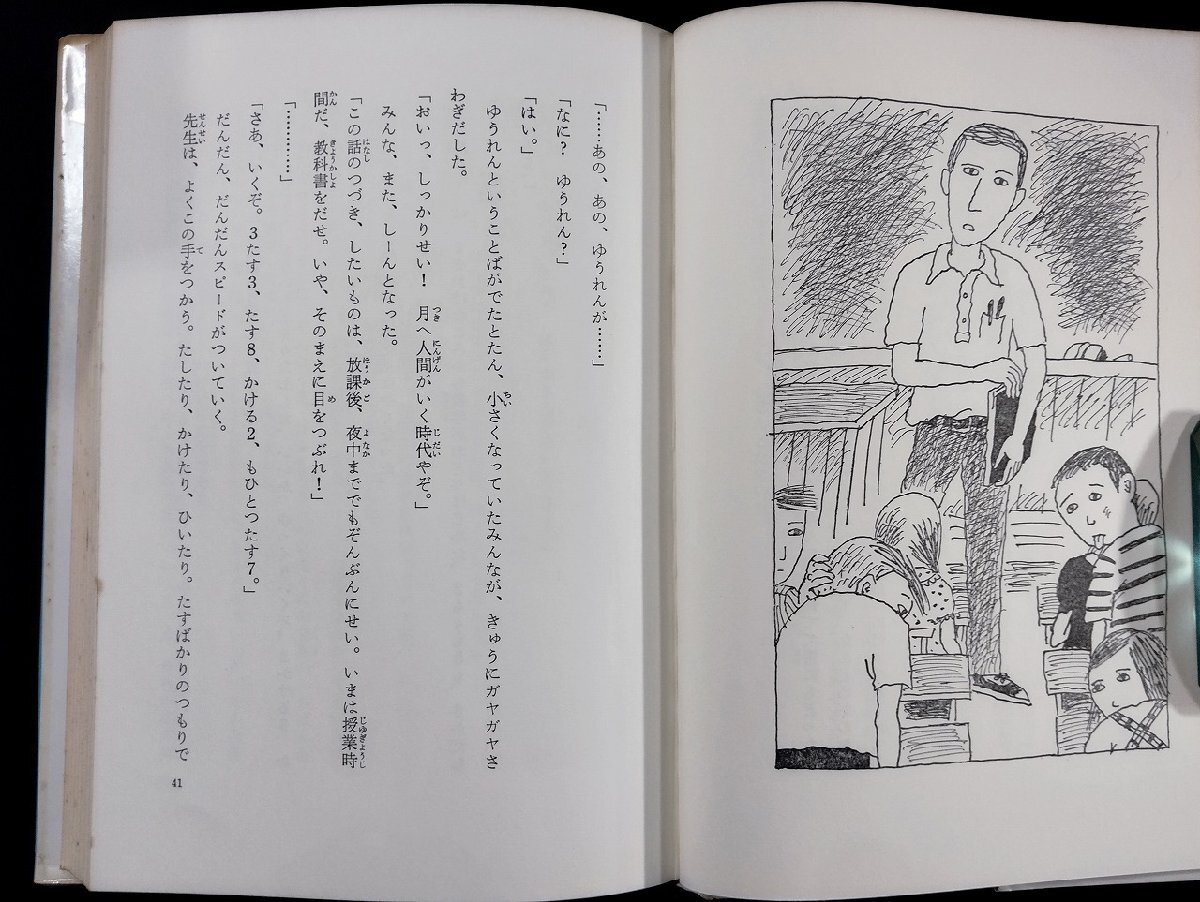 「……あの、あの、ゆうれんが……」
「なに？　ゆうれん？」
「はい。」
ゆうれんということばがでたとたん、小さくなっていたみんなが、きゅうにガヤガヤさ
わぎだした。
「おいっ、しっかりせい！　月へ人間がいく時代やぞ。」
みんな、また、しーんとなった。
「この話のつづき、したいものは、放課後、夜中まででもぞんぶんにせい。いまは授業時
間だ、教科書をだせ。いや、そのまえに目をつぶれ！」
「…………」
「さあ、いくぞ。3たす3、たす8、かける2、もひとつたす7。」
だんだん、だんだんスピードがついていく。
先生は、よくこの手をつかう。たしたり、かけたり、ひいたり。たすばかりのつもりで
41